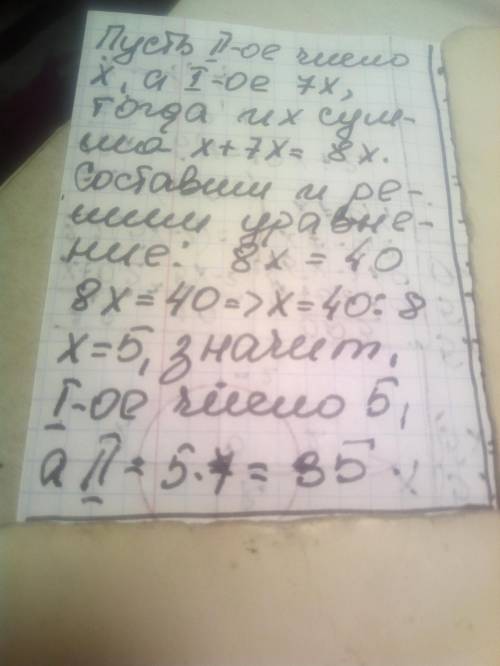 Пусть II-ое число
x, а I-ое 7x,
тогда их сум-
ма x+7x= 8x.
Составим и ре-
шим уравне-
ние: 8x = 40
8x=40=>x=40:8
x=5, значит,
I-ое число 5,
а II = 5·7 = 35